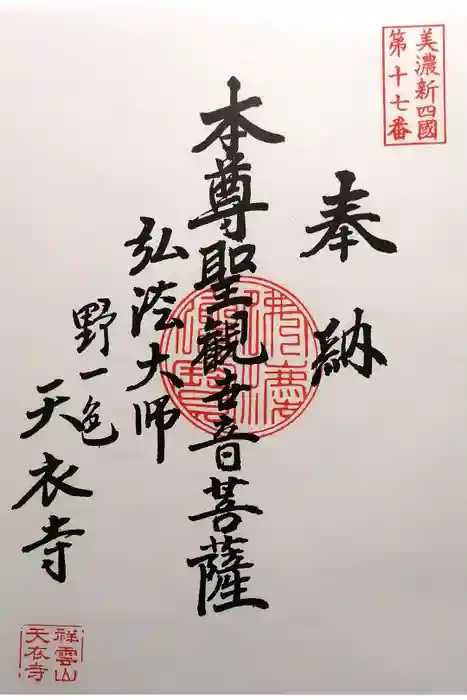 美濃新四國
第十七番
奉納
本尊聖観世音菩薩
弘法大師
野一色
天衣寺
祥雲山
天衣寺